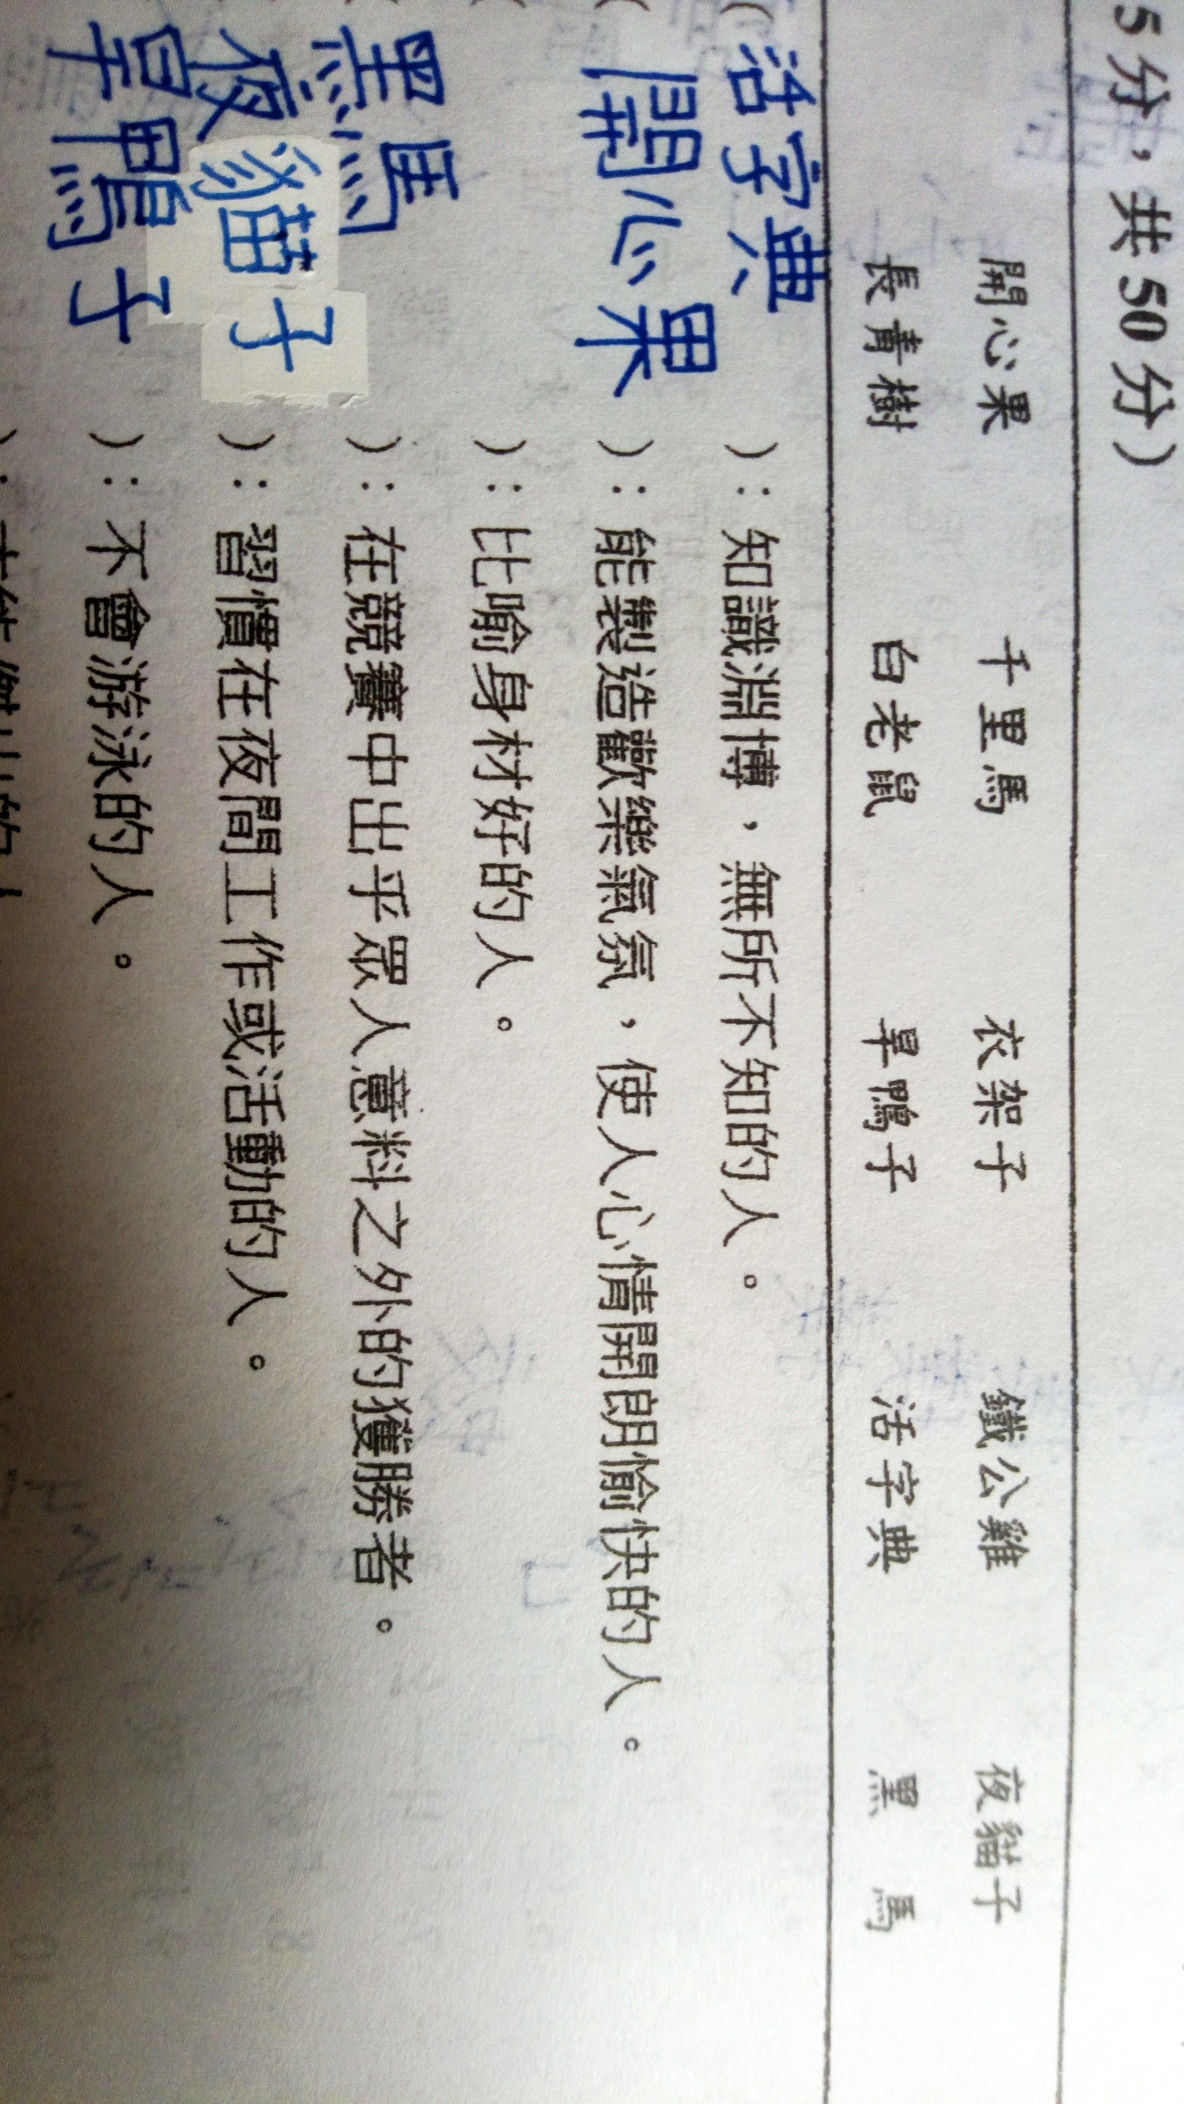 5分，共50分）
開心果 千里馬 衣架子 鐵公雞 夜貓子
長青樹 白老鼠 旱鴨子 活字典 黑馬
（活字典）：知識淵博，無所不知的人。
（開心果）：能製造歡樂氣氛，使人心情開朗愉快的人。
（ ）：比喻身材好的人。
黑馬）：在競賽中出乎眾人意料之外的獲勝者。
夜貓子）：習慣在夜間工作或活動的人。
旱鴨子）：不會游泳的人。